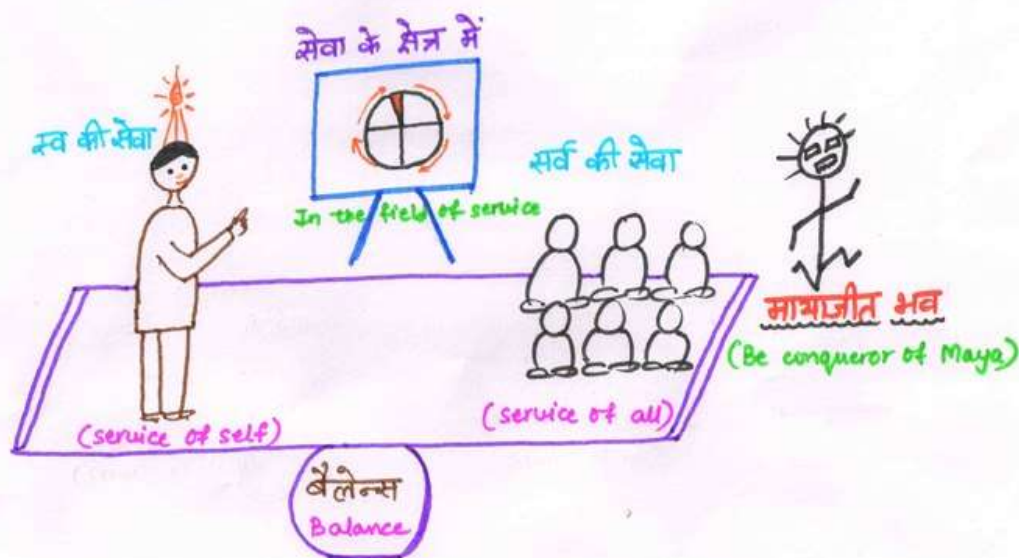 सेवा के क्षेत्र में
स्व की सेवा
In the field of service
सर्व की सेवा
मायाजीत भव
(Be conqueror of Maya)
(service of self)
(service of all)
बैलेन्स
Balance